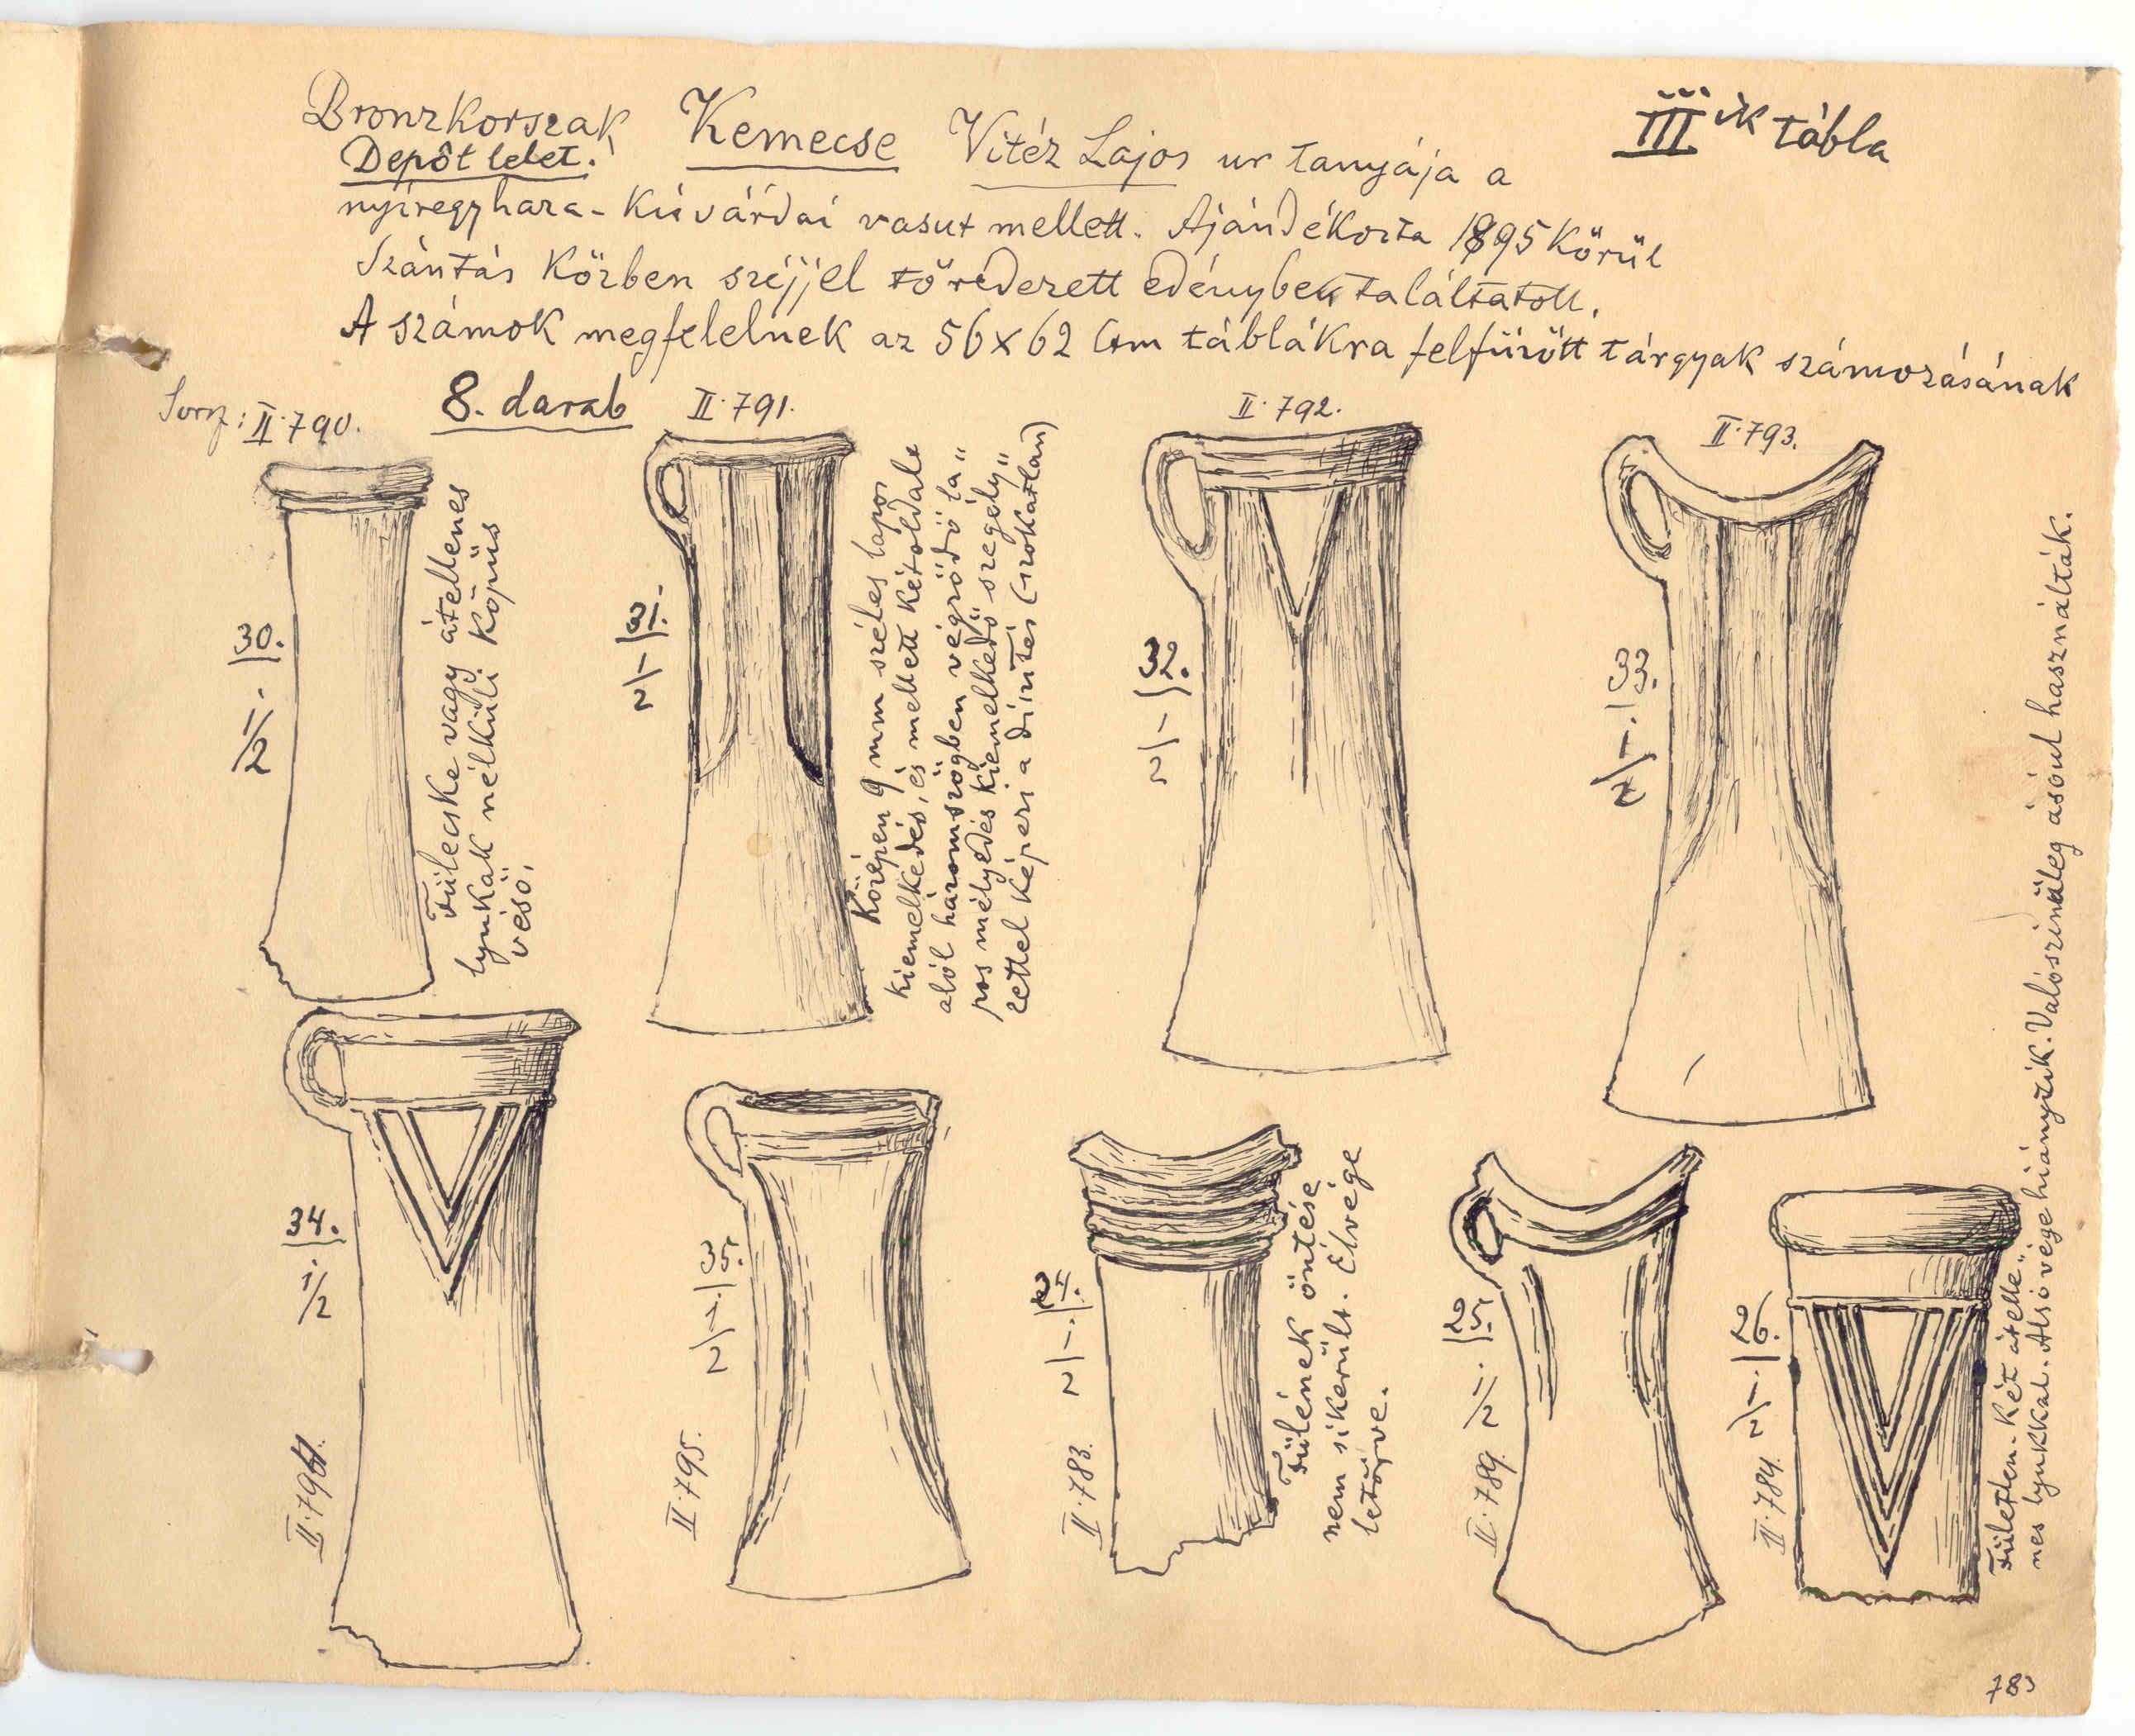 Bronzkorszak Kemecse Vitéz Lajos ur tanyája a
IIIik tábla
Depôt lelet.
nyiregyhaza-Kisvárdai vasut mellett. Ajándékozta 1895 körül
Szántás közben széjjel töredezett edényben találtatott.
A számok megfelelnek az 56x62 Cm táblákra felfüzött tárgyak számozásának
8. darab
II.790.
II.791.
II.792.
II.793.
30.
1/2
Fülecske vagy átellenes
lyukak nélküli köpüs
véső.
31.
1/2
Közepén 9 mm széles lapos
kiemelkedés, és mellett kétoldale
alól háromszögben végződő la„
pos mélyedés kiemelkedő szegély„
zettel képezi a díszítés (szokatlan)
32.
1/2
33
1/2
34.
1/2
II.794.
35.
1/2
II.795.
24.
1/2
II.783.
Fülének öntése
nem sikerült. Élvége
letörve.
25.
1/2
II.789.
26.
1/2
II.784.
Fületlen. Két átelle„
nes lyukkal. Alsó vége hiányzik. Valószinüleg ásóul használták.
783